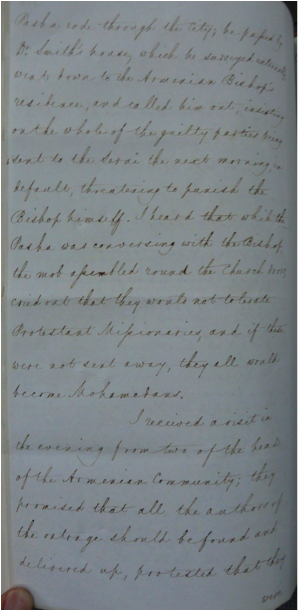 Pasha rode through the City; he passed by
Dr. Smith's house, which he surveyed externally,
went down to the Armenian Bishop's
residence, and called him out, insisting
on the whole of the guilty parties being
sent to the Serai the next morning, in
default, threatening to punish the
Bishop himself. I heard that while the
Pasha was conversing with the Bishop,
the mob assembled round the Church
cried out that they would not tolerate
Protestant Missionaries, and if these
were not sent away, they all would
become Mohamedans.
I received a visit in
the evening from two of the heads
of the Armenian Community; they
promised that all the authors of
the outrage should be found and
delivered up, protested that they
were